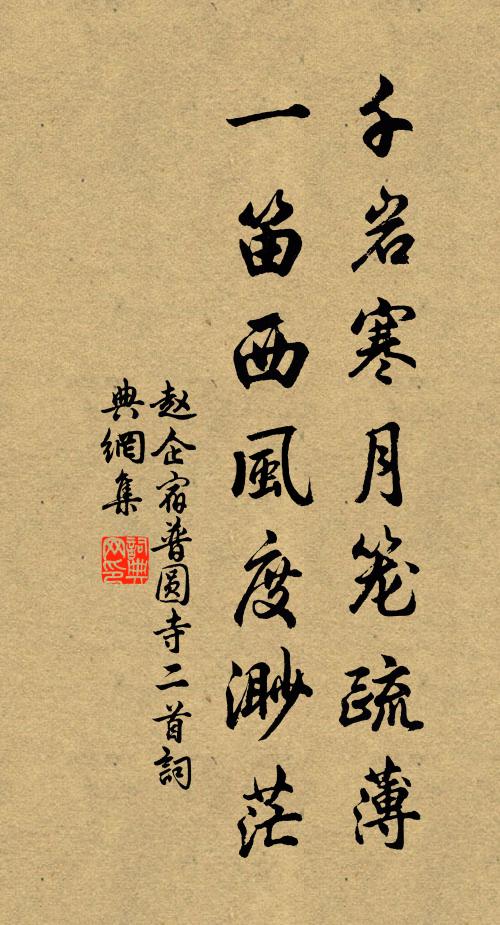 千岩寒月笼疏薄
一笛西風度渺茫
赵企宿普圆寺二首詞
典網集
詞典
网印